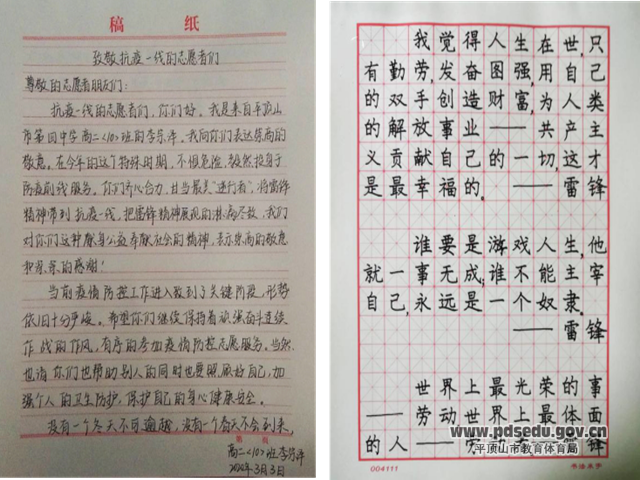 稿 纸
致敬抗疫一线的志愿者们
尊敬的志愿者朋友们：
抗疫一线的志愿者们，你们好。我是来自平顶山
市第四中学高二<10>班的李宗洋。我向你们表达崇高的
敬意。在今年的这个特殊时期，不惧危险，毅然投身于
防疫前线服务。你们齐心合力，甘当最美"逆行者"，将雷锋
精神带到抗疫一线，把雷锋精神展现的淋漓尽致，我们
对你们这种献身公益奉献社会的精神，表示崇高的敬意
和亲的感谢！
当前疫情防控工作进入致到了关键阶段，形势
依旧十分严峻。希望你们继续保持着顽强奋斗连续
作战的作风，有序的参加疫情防控志愿服务。当然
也请你们也帮助别人的同时也要照顾好自己，加
强个人的卫生防护，保护自己的身心健康安全。
没有一个冬天不可逾越，没有一个春天不会到来。
第 页
高二<10>班李宗洋
2020年3月3日
我觉得人生在世，只
有勤劳，发奋图强，用自己
的双手创造财富，为人类
的解放事业——共产主
义贡献自己的一切，这才
是最幸福的。——雷锋
谁要是游戏人生，他
就一事无成；谁不能主宰
自己，永远是一个奴隶。
——雷锋
世界上最光荣的事
——劳动世界上最体面
的人——劳动者——雷锋
www.pdsedu.gov.cn
平顶山市教育体育局
004111